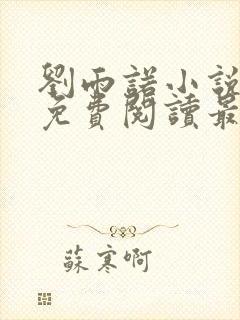 劉雨諾小說
免費閱讀最
蘇寒啊